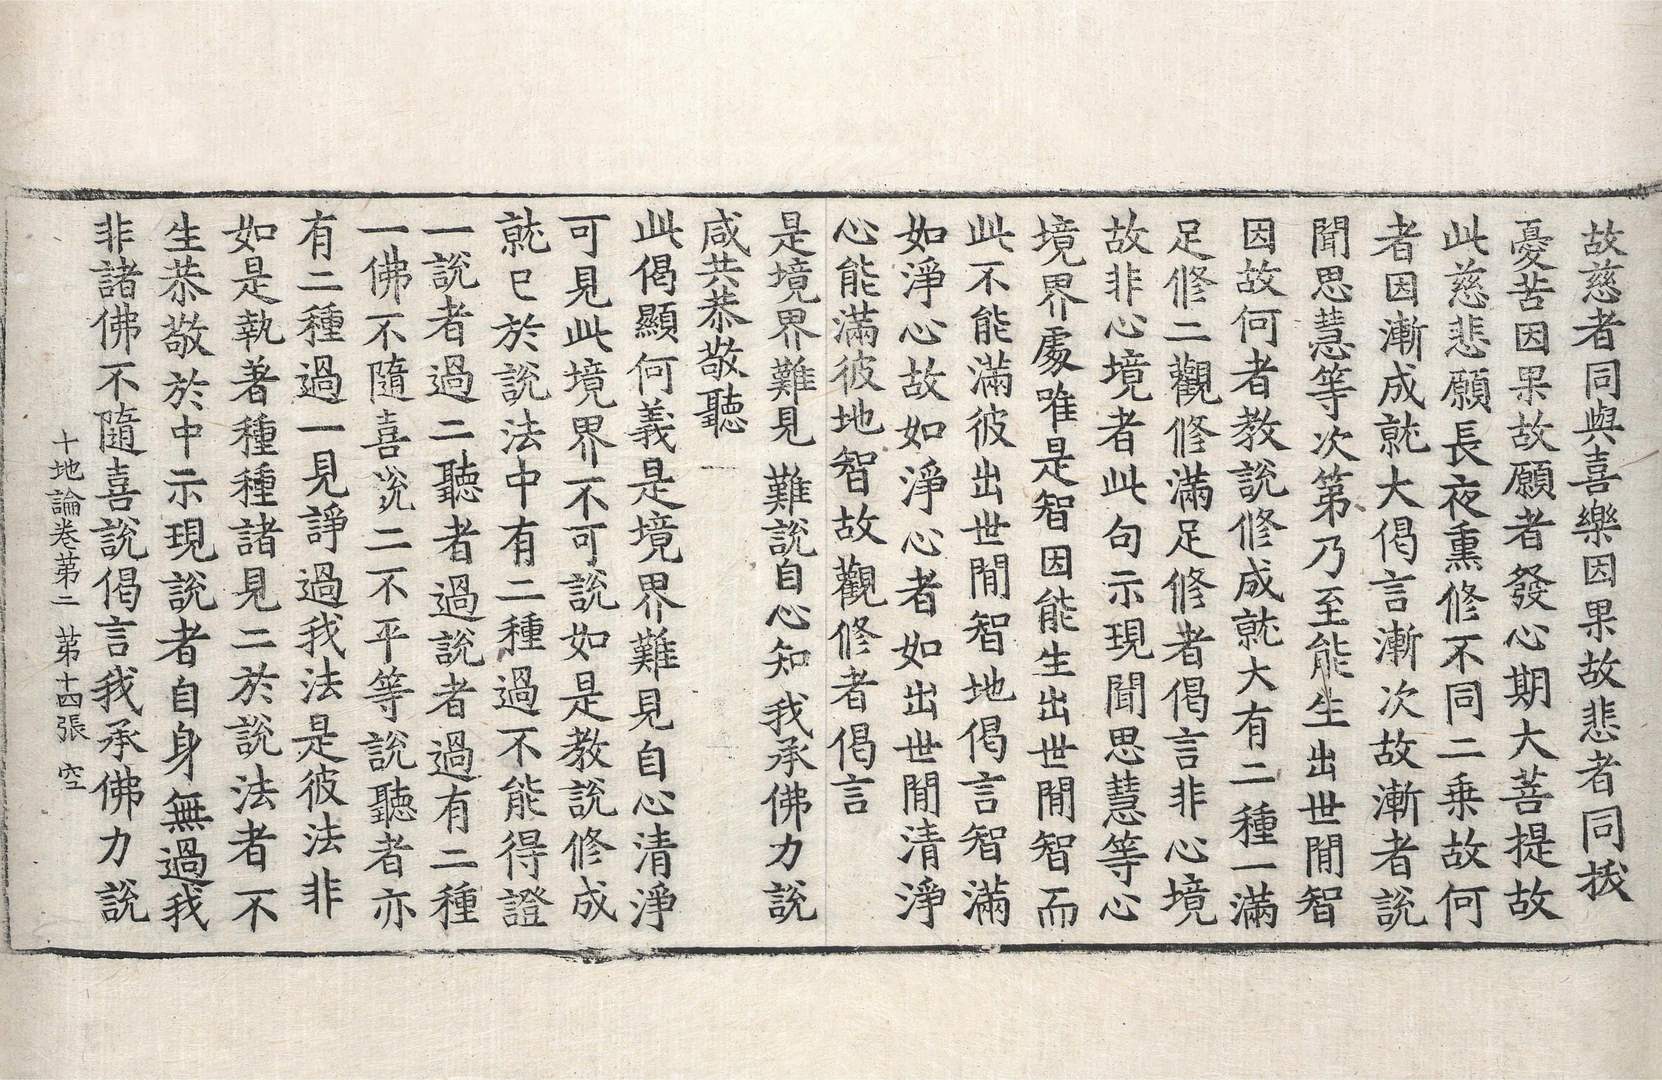 故慈者同與喜樂因果故悲者同拔
憂苦因果故願者發心期大菩提故
此慈悲願長夜熏修不同二乗故何
者因漸成就大偈言漸次故漸者說
聞思慧等次第乃至能生出世閒智
因故何者教說修成就大有二種一滿
足修二觀修滿足修者偈言非心境
故非心境者此句示現聞思慧等心
境界處唯是智因能生出世閒智而
此不能滿彼出世閒智地偈言智滿
如淨心故如淨心者如出世閒清淨
心能滿彼地智故觀修者偈言
是境界難見 難說自心知 我承佛力說
咸共恭敬聽
此偈顯何義是境界難見自心清淨
可見此境界不可說如是教說修成
就已於說法中有二種過不能得證
一說者過二聽者過說者過有二種
一佛不隨喜說二不平等說聽者亦
有二種過一見諍過我法是彼法非
如是執著種種諸見二於說法者不
生恭敬於中示現說者自身無過我
非諸佛不隨喜說偈言我承佛力說
十地論卷第二 第十四張 空